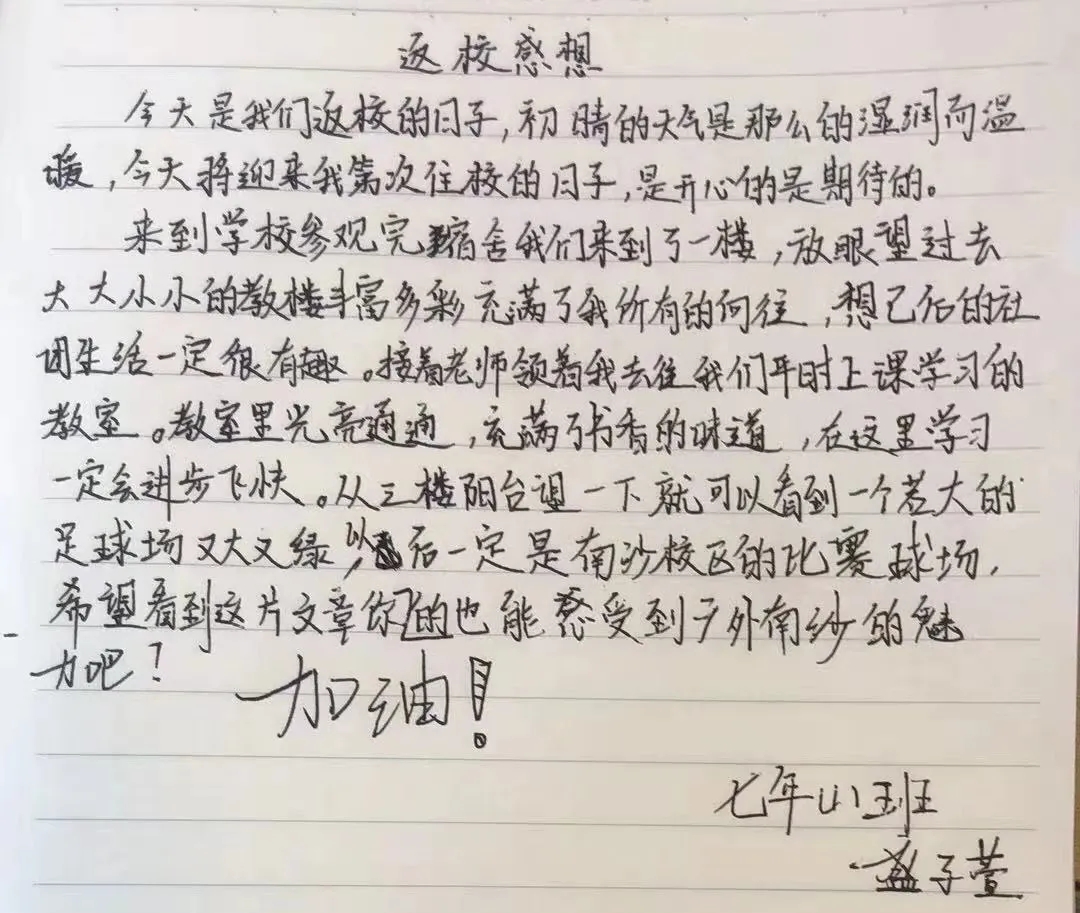 返校感想
今天是我们返校的日子，初晴的天气是那么的湿润而温
暖，今天将迎来我第次住校的日子，是开心的是期待的。
来到学校参观完宿舍我们来到了一楼，放眼望过去
大大小小的教楼丰富多彩充满了我所有的向往，想已后的社
团生活一定很有趣。接着老师领着我去往我们平时上课学习的
教室。教室里光亮通通，充满了书香的味道，在这里学习
一定会进步飞快。从三楼阳台望一下就可以看到一个若大的
足球场又大又绿，以后一定是南沙校区的比赛球场，
希望看到这片文章你们的也能感受到广外南沙的魅
力吧！
加油！
七年(4)班
子萱